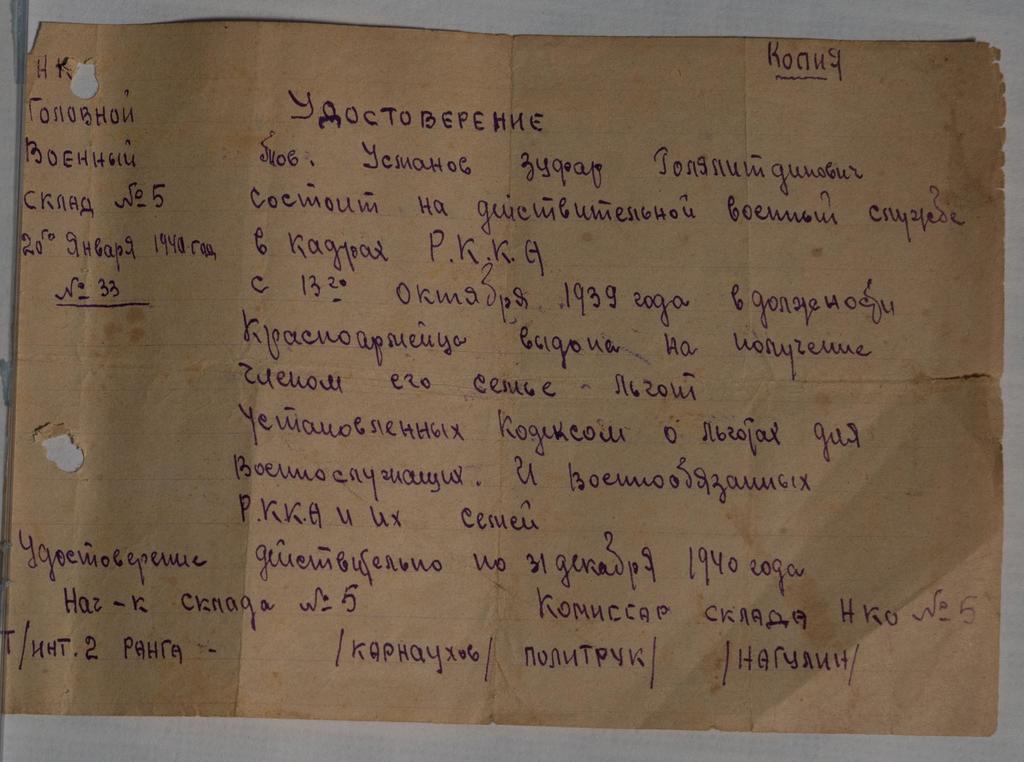 Копия
НК
Головной
Военный
склад №5
20го Января 1940 год
№ 33
Удостоверение
тов. Усманов Зуфар Голялитдинович
состоит на действительной военный службе
в кадрах Р.К.К.А
с 13го Октября 1939 года в должности
Красноармейца выдона на получение
членом его семье - льгот
Установленных Кодексом о льготах для
Военнослужащих. И Военнообязанных
Р.К.К.А и их семей
Удостоверение действительно по 31 декабря 1940 года
Нач-к склада №5 Комиссар склада НКО №5
Т/инт. 2 ранга - /Карнаухов/ политрук/ /Нагулин/